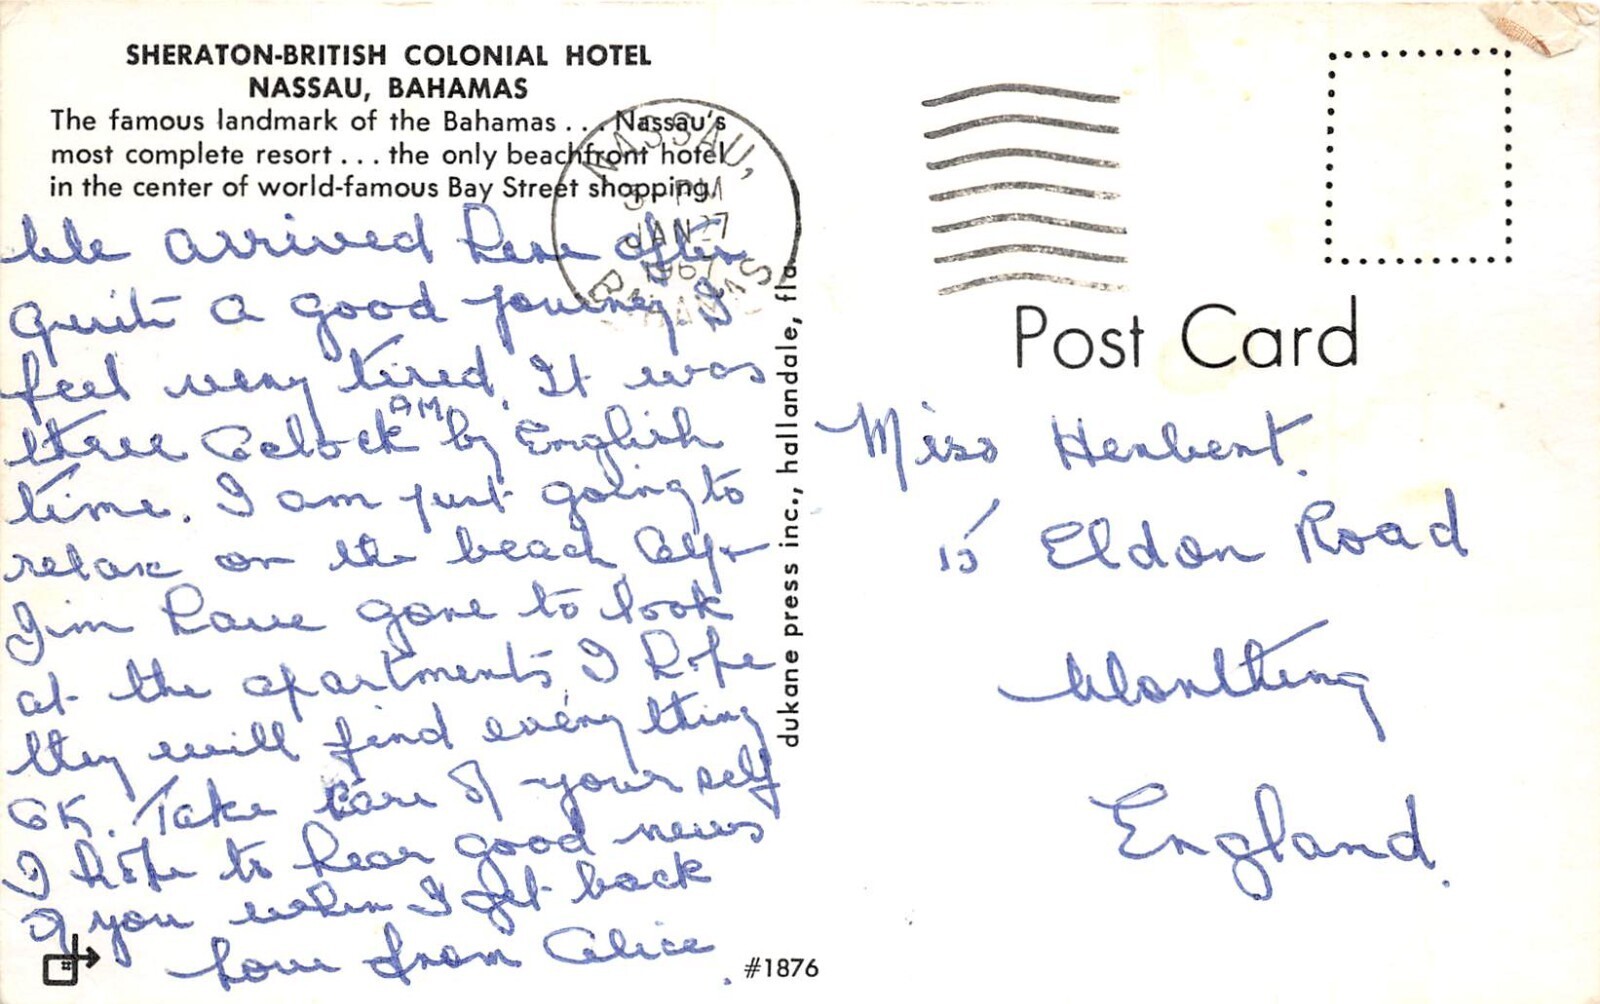 SHERATON-BRITISH COLONIAL HOTEL
NASSAU, BAHAMAS
The famous landmark of the Bahamas . . . Nassau's
most complete resort . . . the only beachfront hotel
in the center of world-famous Bay Street shopping.
We arrived here after
quite a good journey I
feel very tired. It was
three Oclock AM by English
time. I am just going to
relax on the beach Alf +
Jim have gone to look
at the apartments, I hope
they will find every thing
OK. Take care of your self
I hope to hear good news
of you when I get back
love from Alice.
NASSAU,
5 PM
JAN 27
1967
BAHAMAS
dukane press inc., hallandale, fla.
#1876
Post Card
Miss Herbert.
15 Eldon Road
Worthing
England.